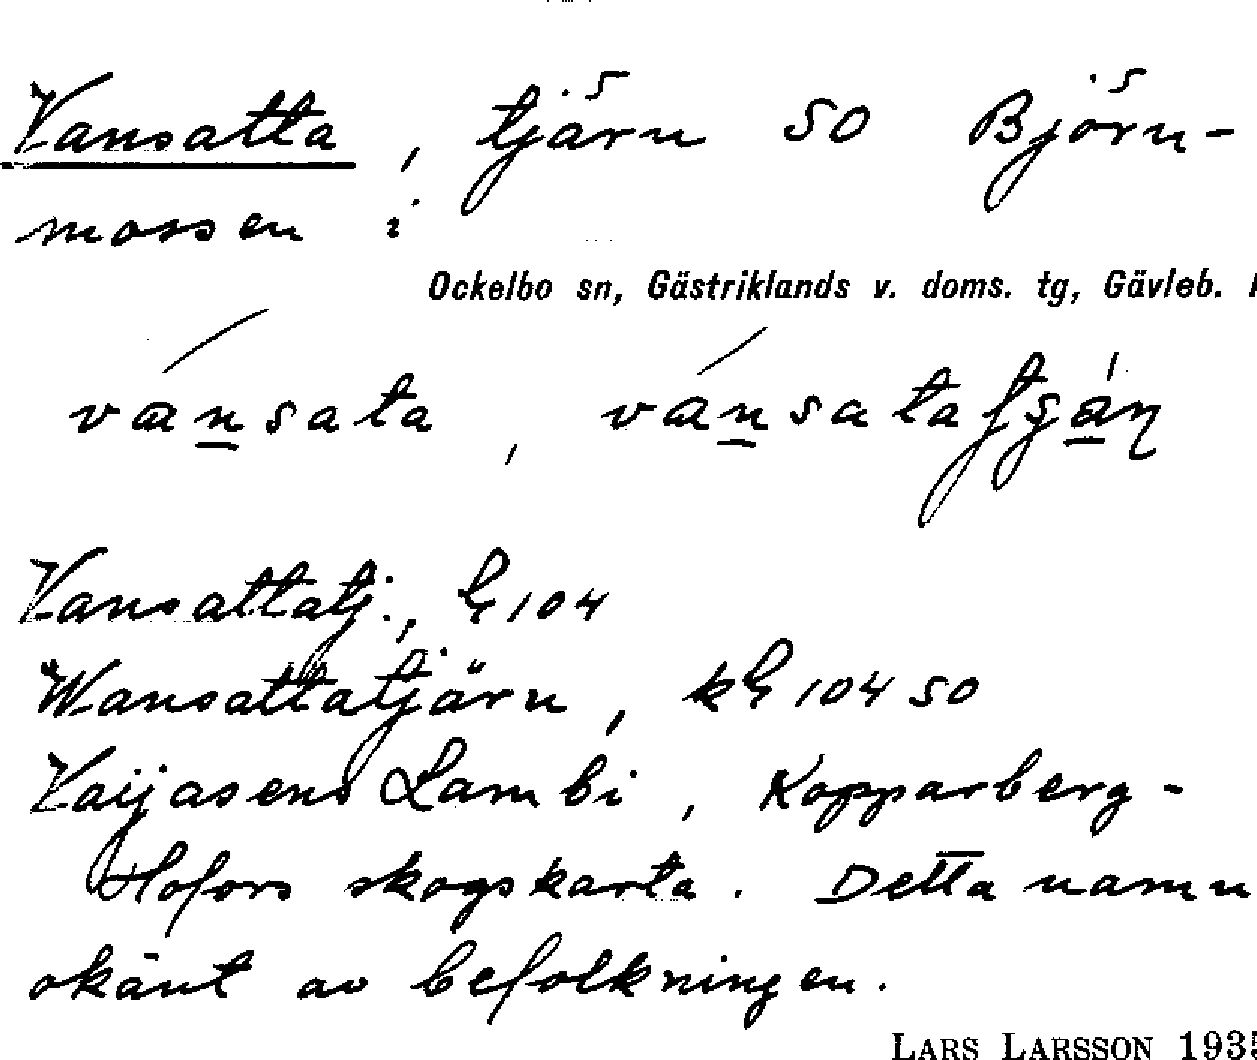 Vansatta, tjärn SO Björn-
mossen i
Ockelbo sn, Gästriklands v. doms. tg, Gävleb.
vansata, vansata
Vansattatj., G 104
Wansattatjärn, kG 104 SO
Vaijasens Lambi, Kopparberg-
Hofors skogskarta. Detta namn
okänt av befolkningen.
LARS LARSSON 1935